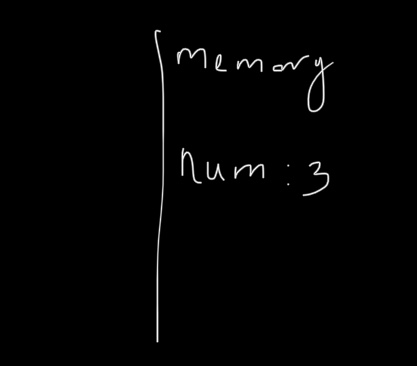 memory
num : 3